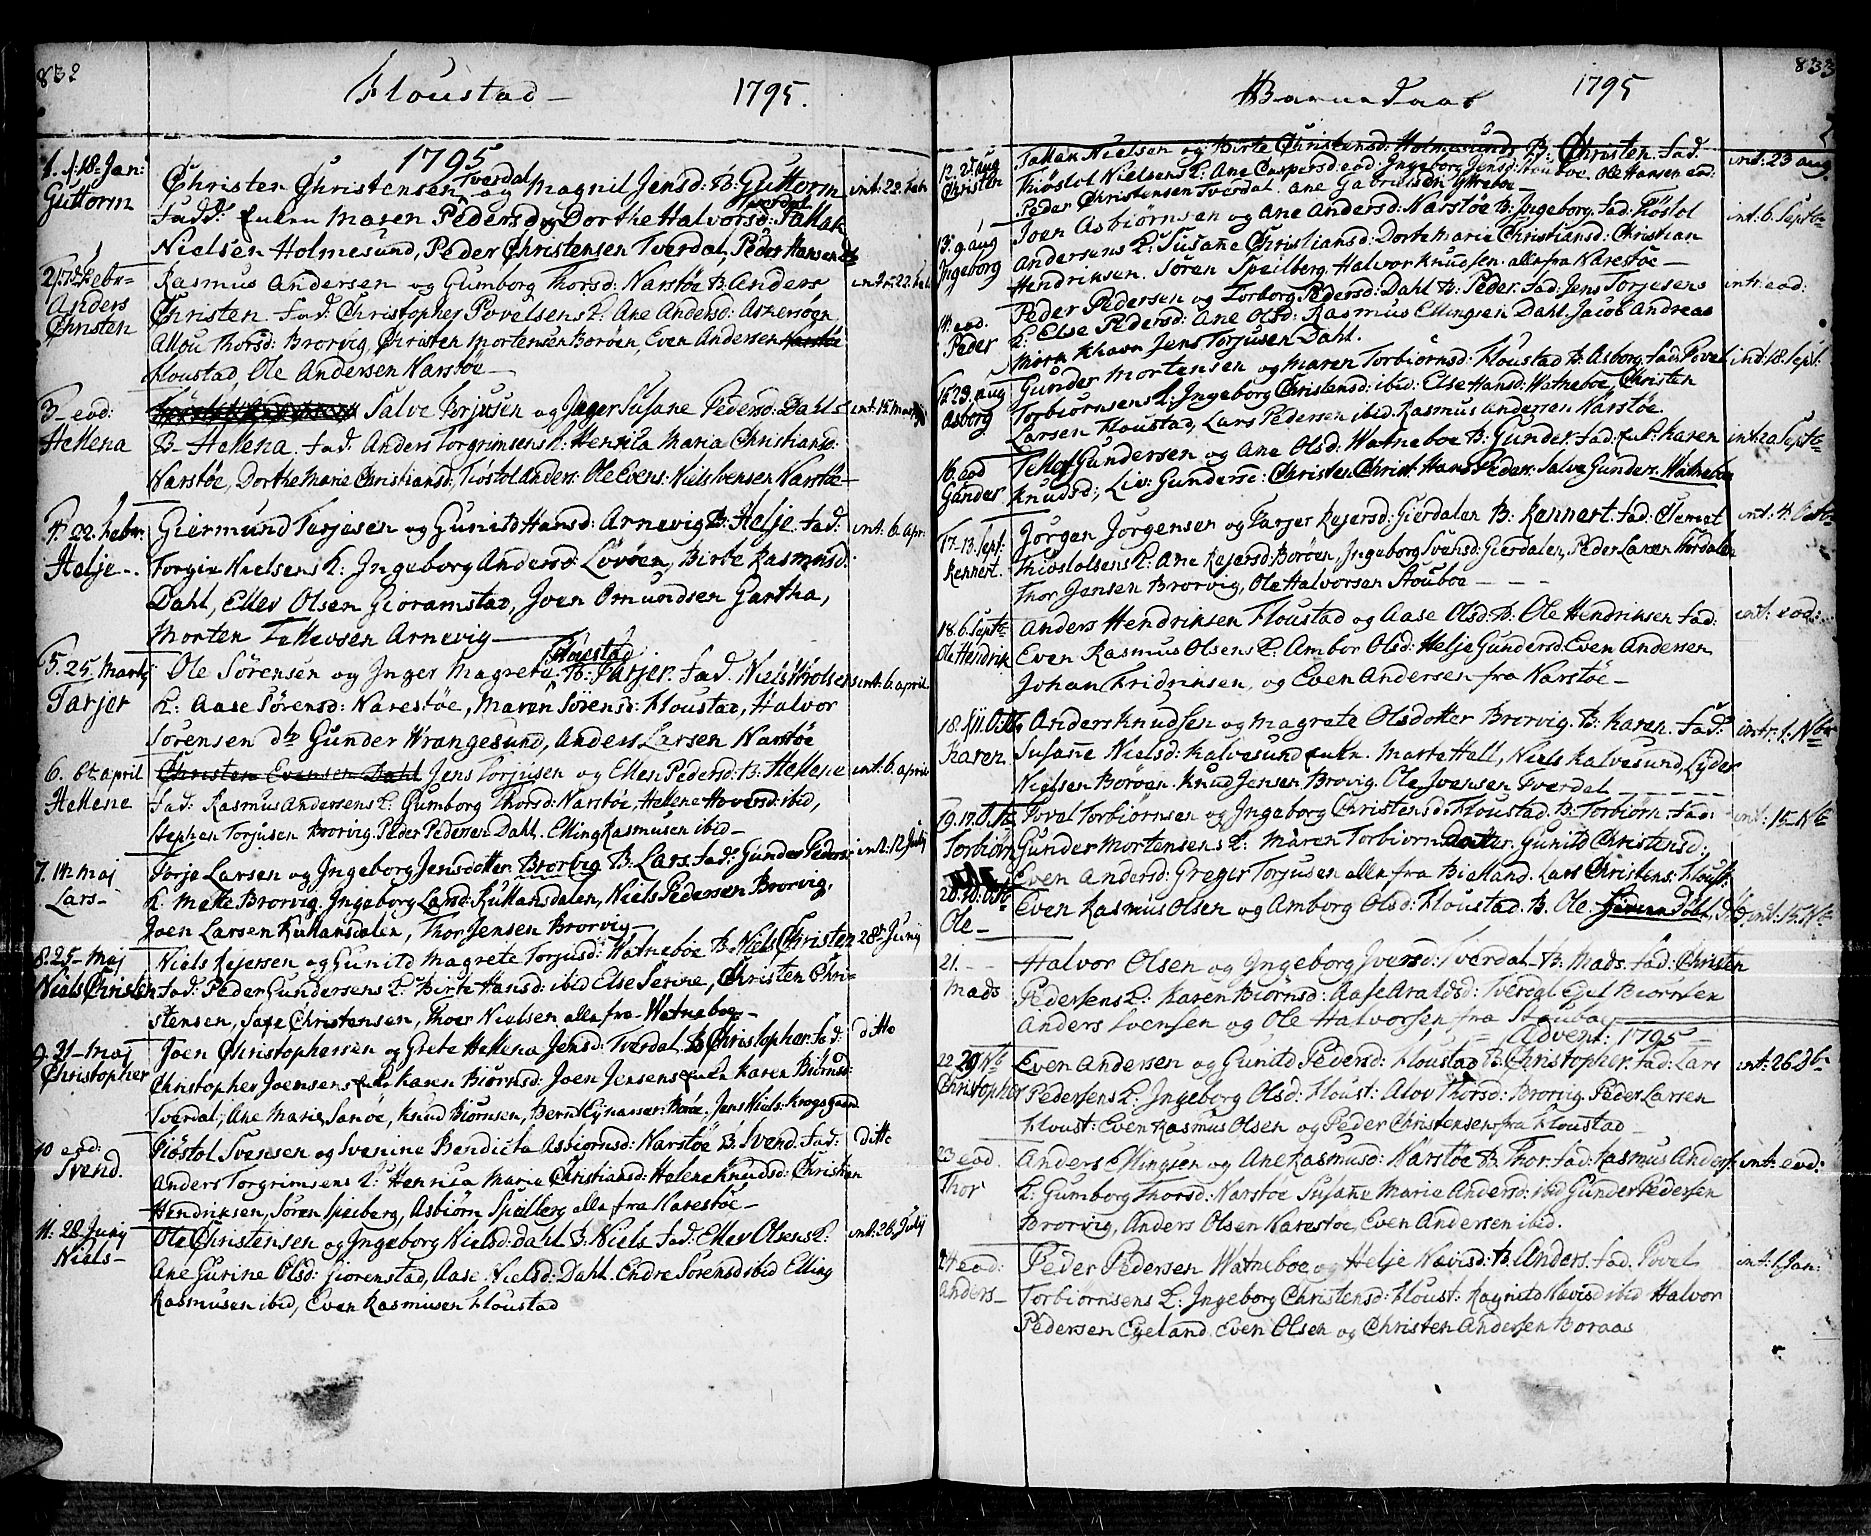 832
Floustad — 1795.
1795
1. d. 18. Jan:
Guttorm
Christen Christensen Tverdal og Magnil Jensd: B: Guttorm
Fadd: Maren Pedersd og Dorthe Halvorsd: Tverdal Tallak
Nielsen Holmesund, Peder Christensen Tverdal, Peder Hansen do
int: 22. Febr
2. 17. Febr-
Anders
Christen
Rasmus Andersen og Gumborg Thorsd: Narstöe B: Anders
Christen Fad: Christopher Povelsens K: Ane Andersd: Askersogn
Allou Thorsd: Brorvig, Christen Mortensen Boröen, Even Andersen Narstöe
Floustad, Ole Andersen Narstöe —
intr: 22. feb
3 — eod:
Hellena
Salve Terjusen og Inger Susane Pedersd: Dahl
B — Hellena. Fad: Anders Torgrimsens K: Henrica Maria Christiansd:
Narstöe, Dorthe Marie Christiansd: Tiostol Anders: Ole Evens: Niels Ivensen Narstöe —
int: 15. Marts
4. 22. febr:
Helje —.
Giermund Terjesen og Gunild Hansd: Arnevig B: Helje. Fad:
Torgir Nielsens K: Ingeborg Andersd: Lövöen, Birte Rasmusd:
Dahl, Ellev Olsen Gioramstad, Joen Omundsen Gartha,
Morten Tellevsen Arnevig —
int: 6. apr:
5. 25. Martj
Tarjer
Ole Sörensen og Inger Magreta Floustad B: Tarjer. Fad. Niels Wrolsens
K: Aase Sörensd: Narestöe, Maren Sörensd: Floustad, Halvor
Sörensen do Gunder Wrangesund, Anders Larsen Narstöe
int: 6. april
6. 6t. april
Hellene
Christen Evensen Dahl Jens Torjusen og Ellen Pedersd: B: Hellene
Fad: Rasmus Andersens K: Gumborg Thorsd: Narstöe, Hellene Hoversd: ibid,
Stephen Torjusen Brorvig, Peder Pedersen Dahl. Elling Rasmusen ibid —
int: 6. april
7. 14. maj
Lars —
Torje Larsen og Ingeborg Jensdotter Brorvig B: Lars. Fad: Gunder Peders:
K: Mette Brorvig, Ingeborg Larsd: Kullansdalen, Niels Pedersen Brorvig,
Joen Larsen Kullansdalen, Thor Jensen Brorvig —
int: 12 July
8. 25 — maj
Niels Christen
Niels Rejersen og Gunild Magrete Torjusd: Watneboe B: Niels Christen
Fad: Peder Gundersens K: Birte Hansd: ibid Else Serine, Christen Chri-
stensen, Christensen, Thoer Nielsen alle fra Watneboe —
28. Junij
9. 21 — maj
Christopher
Joen Christophersen og Grete Hellena Jensd: Tverdal B: Christopher. Fad:
Christopher Joensens Karen Biörnsd: Joen Jensens Karen Biörnsd:
Tverdal, Ane Marie Sanöe, Knud Biörnsen, Boröe, Jens Niels: Krogsgaard
ditto
10 eod:
Svend.
Tiöstol Svensen og Svenine Bendicta Asbiornsd: Narstöe B: Svend. Fad:
Anders Torgrimsens K: Henrica Marie Christiansd: Helene Knudsd: Christian
Hendriksen, Sören Speiberg, Asbiörn Speilberg alle fra Narestöe —
ditto
11. 28 Junij
Niels —
Ole Christensen og Ingeborg Nielsd: Dahl B: Niels Fad: Ellev Olsens K:
Ane Gurine Olsd: Giorenstad, Aase Nielsd: Dahl. Endre Sorensd ibid Elling
Rasmusen ibid, Even Rasmusen Floustad
int: 26. Julij
833
Barnedaab 1795
12. 2. aug
Christen
Tallak Nielsen og Birte Christensd: Holmesund B: Christen. Fad.
Thiöstol Nielsens K: Ane Caspersd eod: Ingeborg Jensd: Ole Hansen eod:
Peder Christensen Tverdal. Ane Gabrielsd Yttreboe —
int: 23 aug
13. 9 aug
Ingeborg
Joen Asbiörnsen og Ane Andersd: Narstöe B: Ingeborg. Fad: Tiöstol
Andersens K: Susane Christiansd: Dorte Marie Christiansd: Christian
Hendriksen. Sören Speilberg. Halvor Knudsen. alle fra Narestöe —
int: 6. Septbr
14. eod:
Peder
Peder Pedersen og Torborg Pedersd: Dahl B: Peder. Fad: Jens Torjesens
K: Else Pedersd: Ane Olsd: Rasmus Ellingsen Dahl. Jacob Andreas
Jens Torjusen Dahl.
intr: eod:
15. 23. aug
Asborg
Gunder Mortensen og Maren Torbiörnsd: Floustad B: Asborg. Fad: Povel
Torbiörnsens K: Ingeborg Christensd: ibid: Else Hansd: Watneboe, Christen
Larsen Floustad, Lars Pedersen ibid. Rasmus Andersen Narstöe
int: 18. Sept:
16. eod
Gunder
Tellef Gundersen og Ane Olsd: Watneboe B: Gunder. Fad: Karen
Knudsd:, Liv: Gundersd: Christen Christ: Hans Peder: Salve Gunders: Watneboe
int: 20 Septbr
17. 13. Sept:
Rennert.
Jörgen Jörgensen og Tarjer Rejersd: Gierdalen B: Rennert. Fad:
Thiöstolsens K: Ane Rejersd: Boröen, Ingeborg Svensd: Gierdalen, Peder Larsen
Thor Jensen Brorvig, Ole Halvorsen Stouboe — — —
int: 4. Octbr
18. 6. Septbr
Ole Hendrik
Anders Hendriksen Floustad og Aase Olsd: B: Ole Hendriksen Fad:
Even Rasmus Olsens K: Ambor Olsd: Helje Gundersd: Even Andersen
Johan Fridriksen, og Even Andersen fra Narstöe —
int: eod:
18. 11. Octb
Karen
Anders Knudsen og Magrete Olsdotter Brorvig. B: Karen. Fad:
Susane Nielsd: Kalvesund Marte Hell, Niels Kalvesund, Lyder
Nielsen Boröen. Knud Jensen Brovig. Ole Ivensen Tverdal —
intr: 1. Nbr
19. 17. Octb
Torbiörn
Povel Torbiörnsen og Ingeborg Christensd: Floustad. B: Torbiörn. Fad:
Gunder Mortensens K: Maren Torbiorn Datter. Gunild Christensd:
Even Andersd: Greger Torjusen alle fra Bialland. Lars Christens: Floust:
int: 15. Nbr
20. 20. Octb
Ole —
Even Rasmus Olsen og Amborg Olsd: Floustad. B. Ole.
int: 15. Nbr
21. — —
Mads
Halvor Olsen og Ingeborg Iversd: Tverdal B: Mads. Fad: Christen
Pedersens K: Karen Biörnsd: Aase Araldsd: Tveral Egel Biörnsen
Anders Svensen og Ole Halvorsen fra Stauboe
Advent: 1795 —
22. 29 Nbr
Christopher
Even Andersen og Gunild Pedersd: Floustad B: Christopher. Fad: Lars
Pedersens K: Ingeborg Olsd: Floust: Alov Thorsd: Brorvig. Peder Larsen
Floust: Even Rasmus Olsen og Peder Christensen fra Floustad —
int: 26 Db
23 eod.
Thor
Anders Ellingsen og Ane Rasmusd: Narstöe B: Thor. Fad: Rasmus Anders:
K: Gumborg Thorsd: Narstöe Susane Marie Andersd: ibid Gunder Pedersen
Brorvig, Anders Olsen Narestöe, Even Andersen ibid.
int: eod:
24 eod:
Anders —
Peder Pedersen Watneboe og Helje Næwisd: B: Anders. Fad. Povel
Torbiörnsens K: Ingeborg Christensd: Floust: Ragnild Næwisd ibid Halvor
Pedersen Egeland. Even Olsen og Christen Andersen Boraas
int: 1. Jan: